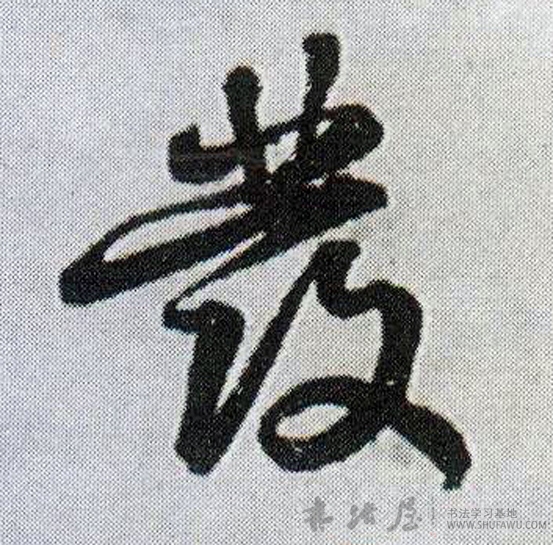 發
书法屋
书法学习基地
WWW.SHUFAWU.COM